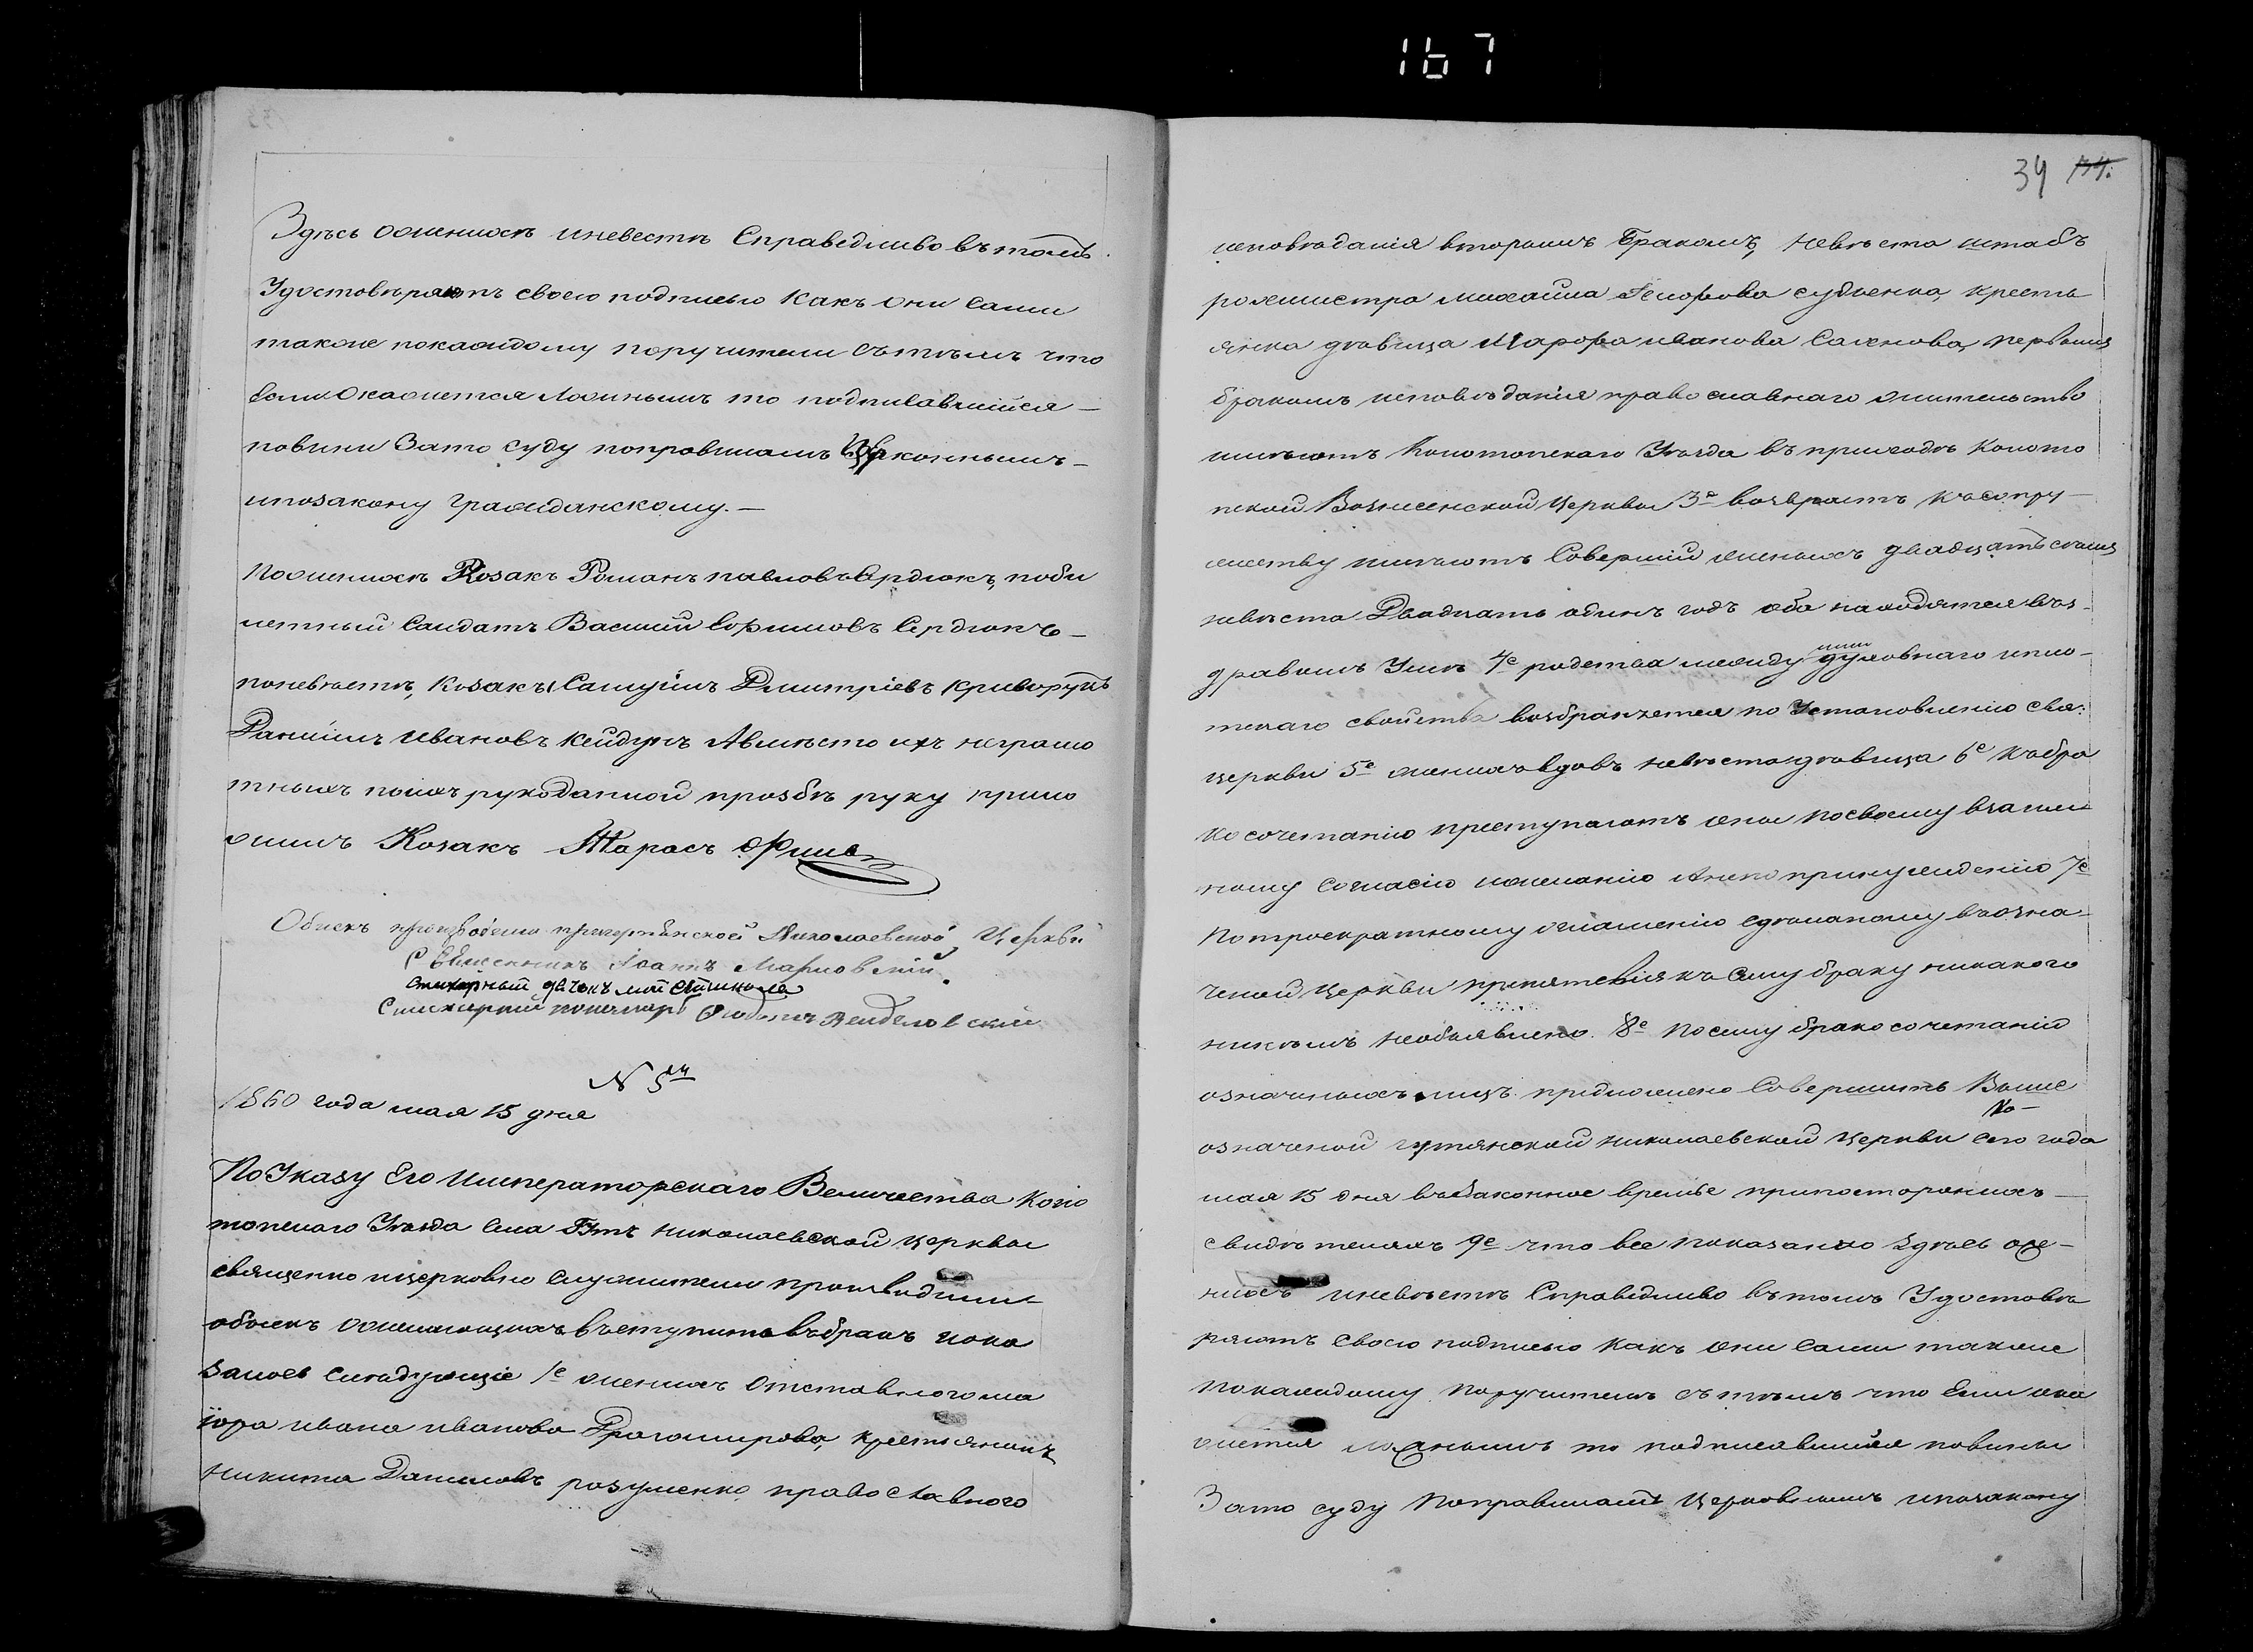 167
Здѣсь оженихѣ иневестѣ Справедливо въ томъ
Удостовѣраютъ своею подписью Какъ они сами
такоже покаждому поручители сътѣмъ что
если Окажется Ложнымъ то подписавшійся —
повини Зато суду поправиламъ Церконнымъ —
ипозакону Гражданскому. —
Поженихѣ Козакъ Романъ павловъ Сердюкъ, поби
летный Салдатъ Василий Ефимовъ Сердюкъ —
поневѣстѣ, Козакы Самуилъ Дмитріевъ Криворучъ
Даниилъ Ивановъ Кейдунъ Авместо ихъ неграмо
тныхъ поихъ рукоданной прозбѣ руку прило
жилъ Козакъ Тарасъ
Обискъ производили Николаевской Церкви
Священникъ Іоаннъ Марковскій
Стихарный дячокъ
Стихарный пономарь
N 5й
1860 года мая 15 дня
По Указу Его Императорскаго Величества Коно
топскаго Уѣзда Села Гутъ Николаевской церквы
священно ицерковно служители производили
обыскъ ожелающихъ вступить въ бракъ ипока
залось слѣдующіе 1е женихъ Отставного ма
іора Ивана Иванова Драгомирова, крестьянинъ
Никита Даниловъ розуменко православного
34 134.
исповѣданія вторымъ Бракомъ, Невѣста штабъ
ротмистра михаила судьенка, кресть
янка дѣвица Марфа иванова первымъ
бракомъ исповѣданія православнаго жительство
имѣютъ Конотопскаго Уѣзда въ приходѣ Коното
пской Вознесенской Церквы 3е возврастъ къ супру —
жеству имѣютъ Соверший женихъ двадцать семь
невѣста Двадцать одинъ годъ оба находятся въз-
дравомъ Умѣ 4е родства между ими духовнаго ипло-
тскаго свойства возбраняется по Установленію свя:
церкви 5е женихъ вдовъ невѣста дѣвица 6е Къ бра
косочетанію преступаютъ они посвоему взаим
ному Согласію ижеланію Анепо принуждению 7е
Потроекратному оглашенію сдѣланому въозна-
ченой церкви препятсвія къ сему браку никакого
никѣмъ необъявлено. 8е Посему бракосочетаній
означеныхъ лицъ предложено Совершить Выше
означеной гутянской николаевской Церкви сего года
мая 15 дня въ Законное времье припостороныхъ —
свидѣтеляхъ 9е что все показано здѣсь оже-
нихѣ иневѣстѣ Справедливо въ томъ Удостовѣ
ряютъ своею подписью Какъ они сами такоже
покаждому Поручитель сътѣмъ что Если ока
жется ложнымъ то подписавшийся повины
Зато суду Поправиламъ Церковнымъ ипозакону